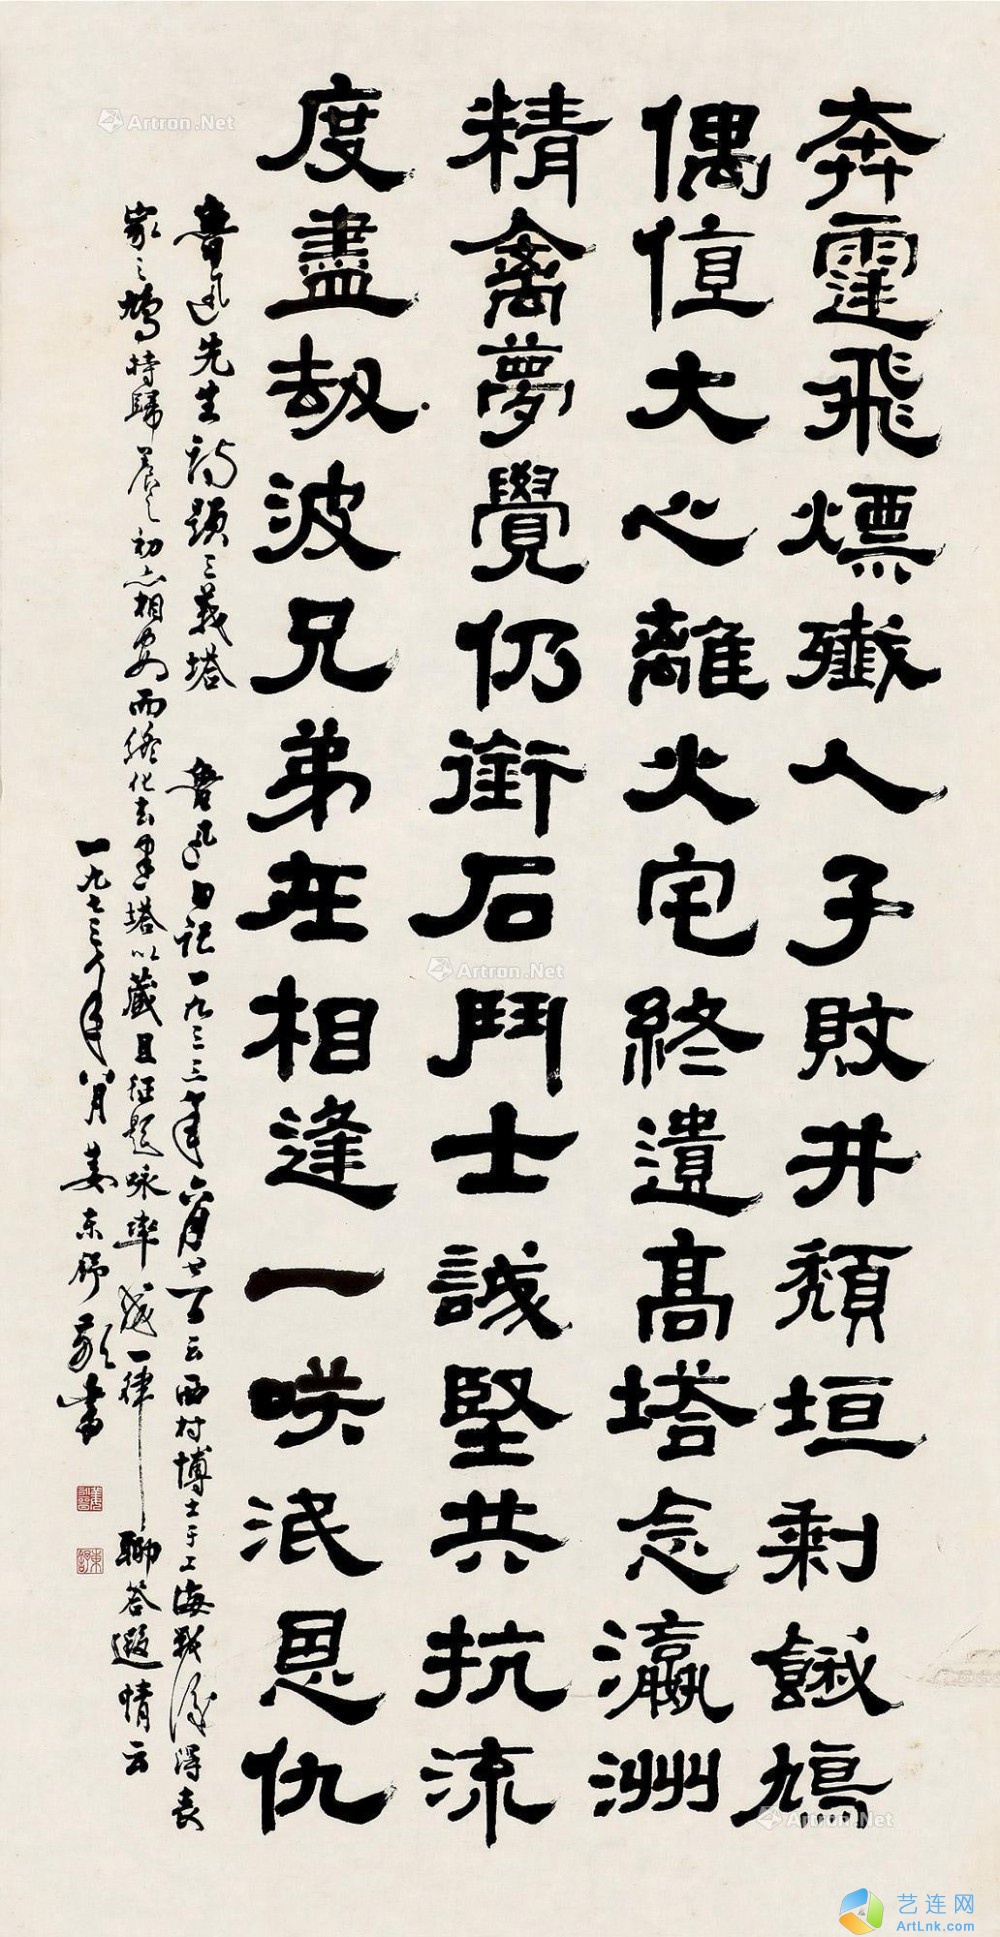 奔霆飛熛殱人子敗井頹垣剩餓鳩
偶值大心離火宅終遺高塔念瀛洲
精禽夢覺仍銜石鬥士誠堅共抗流
度盡劫波兄弟在相逢一咲泯恩仇
魯迅先生詩題三義塔 魯迅日記一九三三年六月廿一日云西村博士于上海戰後得喪
家之鳩持歸養之初亦相安而終化去建塔以藏且征題咏率成一律聊答遐情云
一九七三年八月姜東舒敬書
Artron.Net
Artron.Net
Artron.Net
艺连网
ArtLnk.com